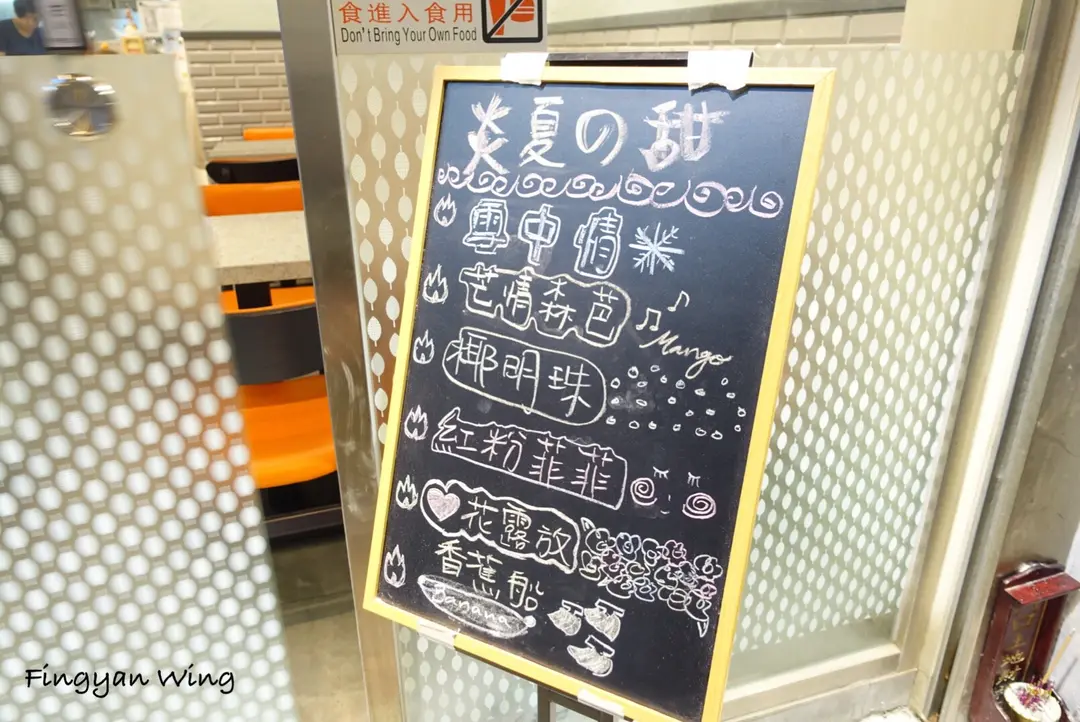 食進入食用
Don't Bring Your Own Food
炎夏の甜
雲中情
芒情森芭
Mango
椰明珠
紅粉菲菲
花露放
香蕉船
Banana
Fingyan Wing